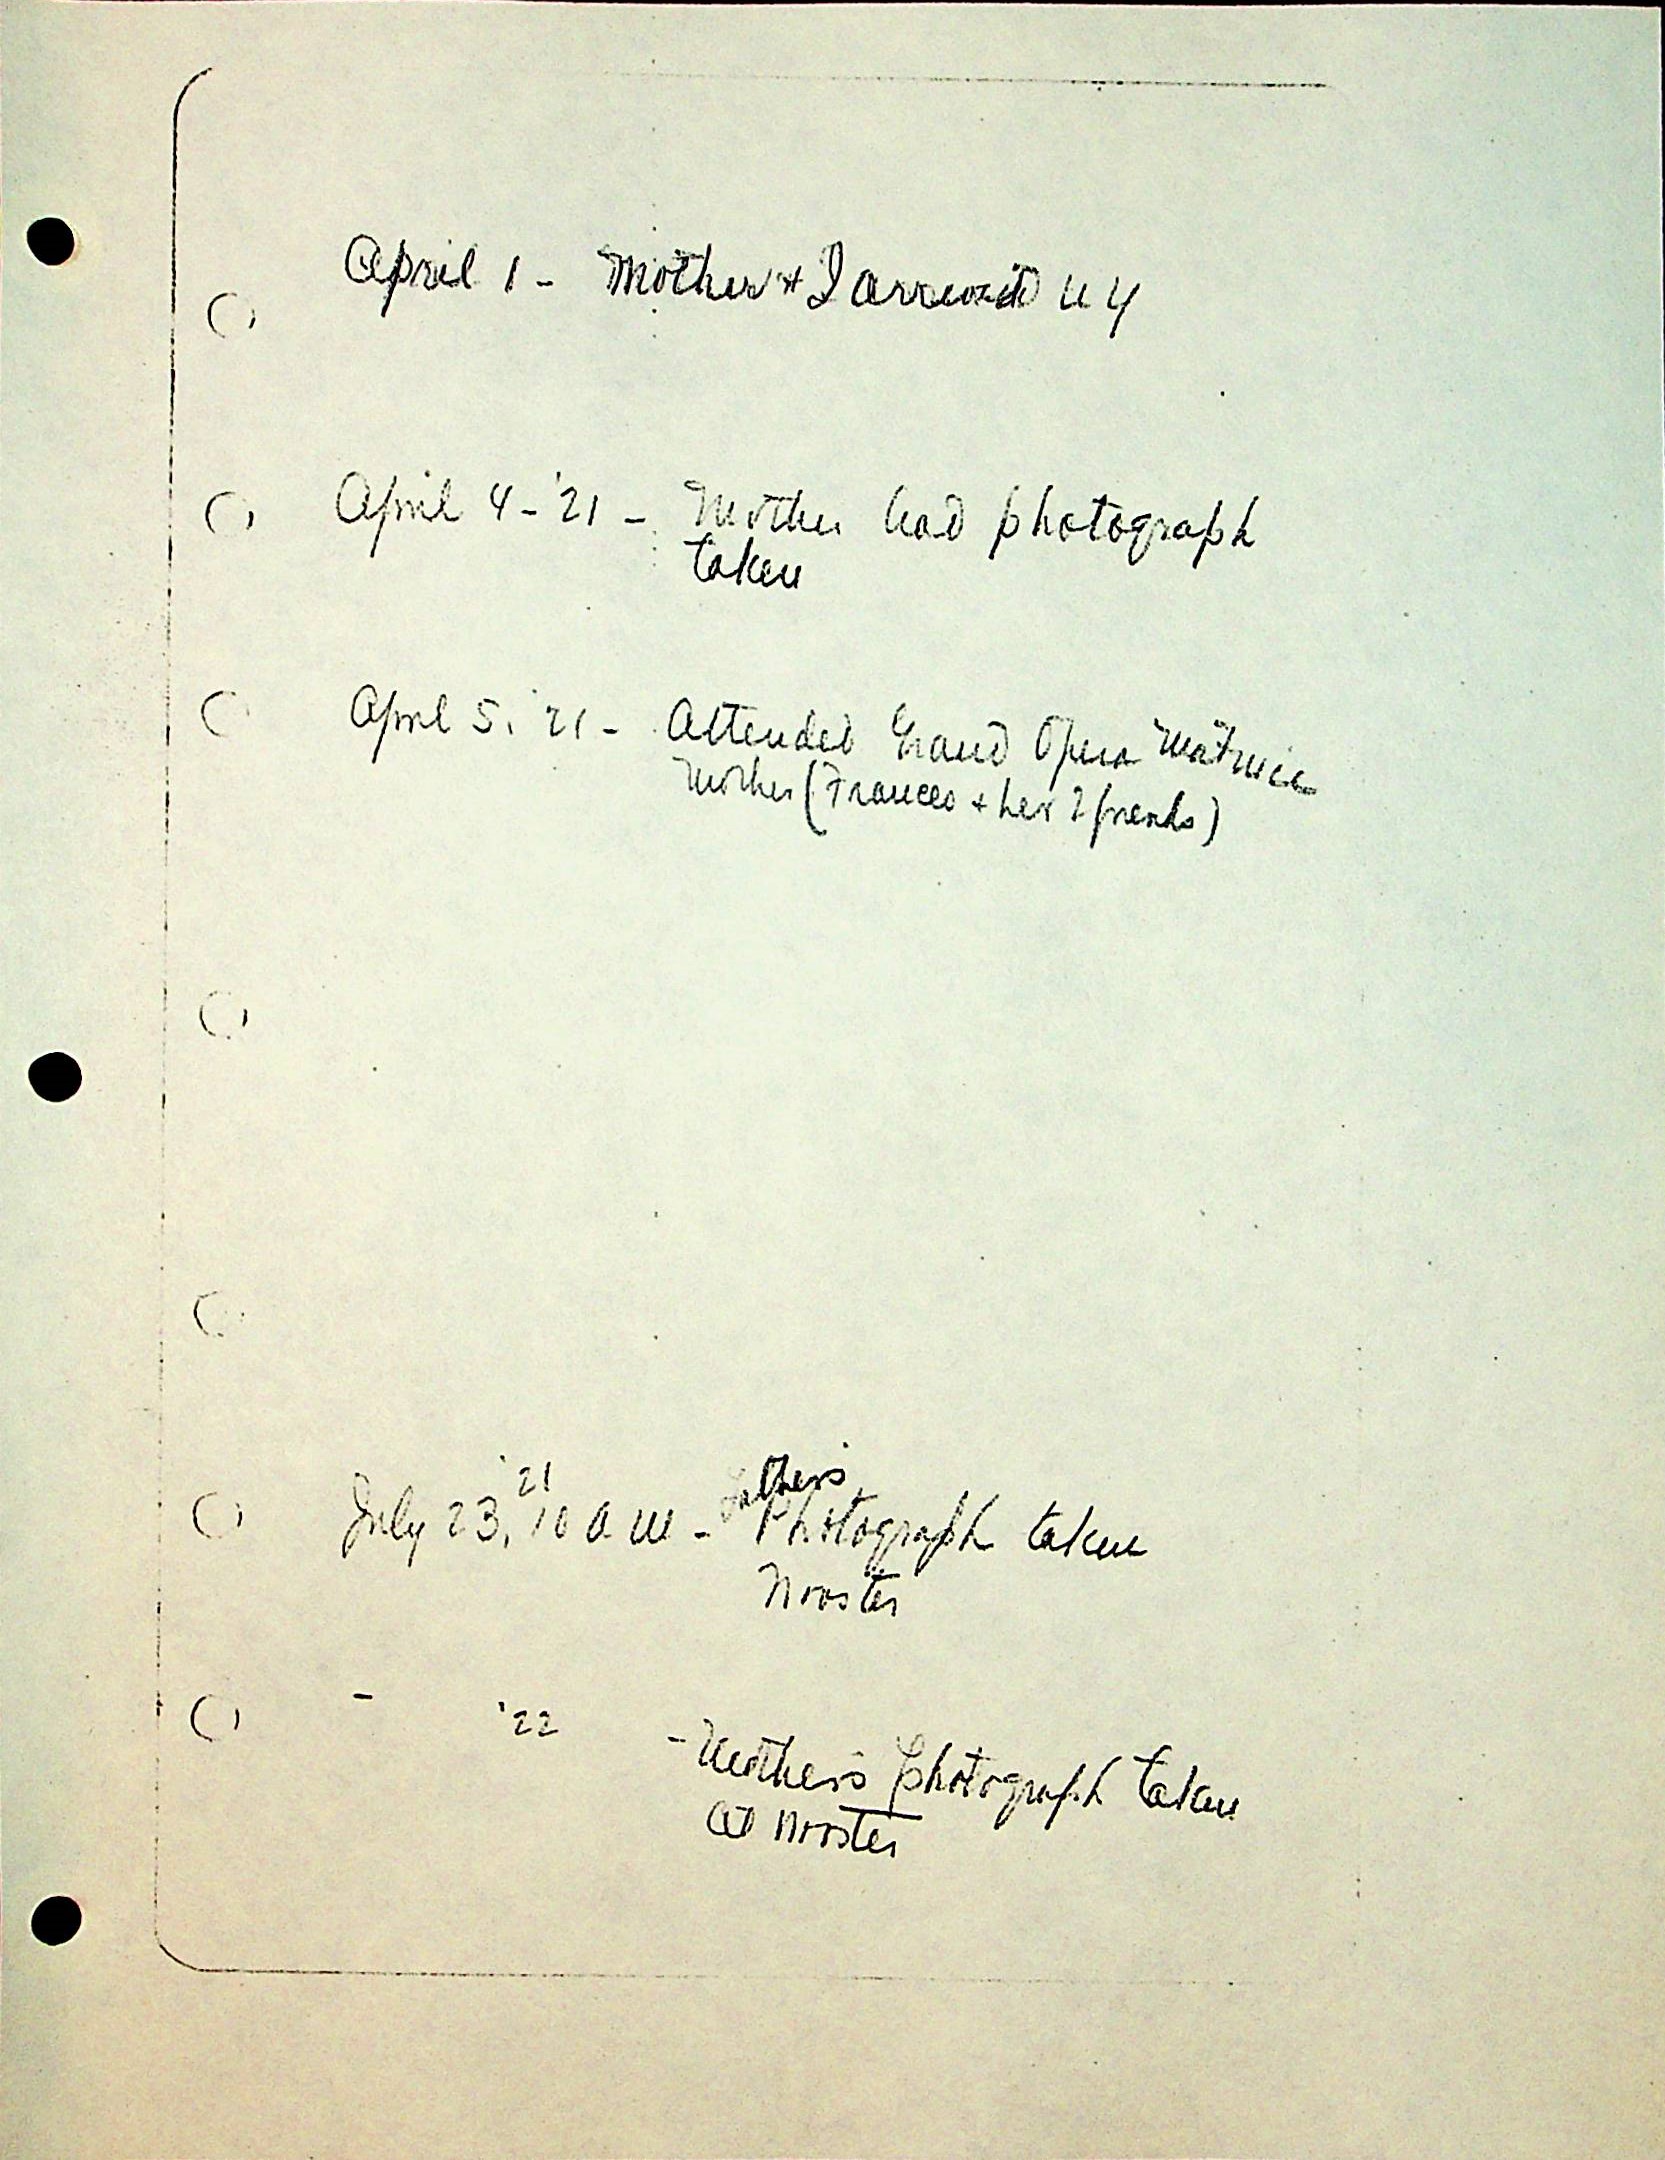 April 1 - Mother + I arrived N Y
April 4 - '21 - Mother had photograph
taken
April 5, '21 - Attended Grand Opera Matinee
Mother (Frances + her 2 friends)
July 23, '21 10 a m - Father's Photograph taken
Wooster
- '22 - Mother's photograph taken
at Wooster